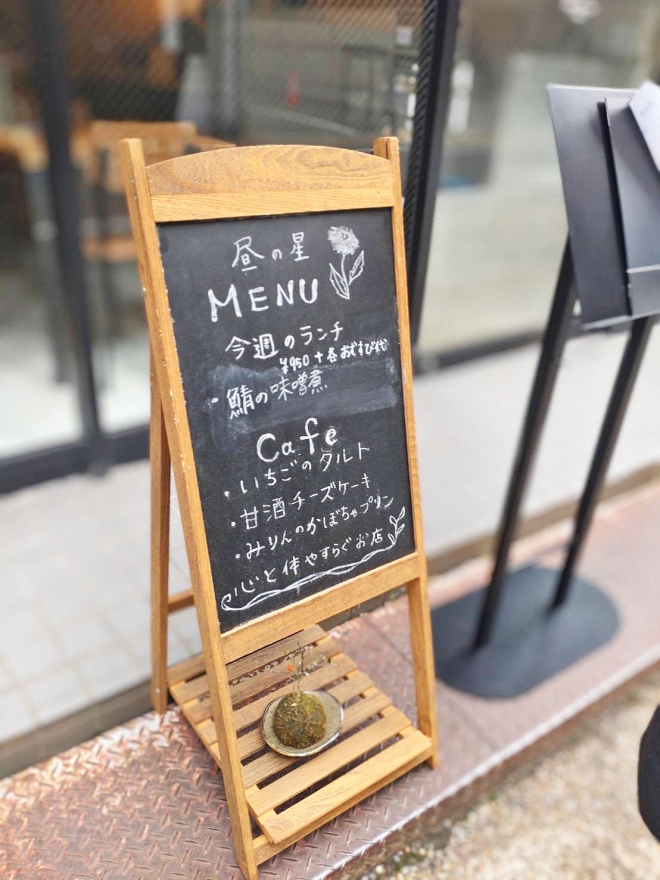 昼の星
MENU
今週のランチ
¥950+各おむすび代
・鯖の味噌煮
Cafe
・いちごのタルト
・甘酒チーズケーキ
・みりんのかぼちゃプリン
心と体やすらぐお店